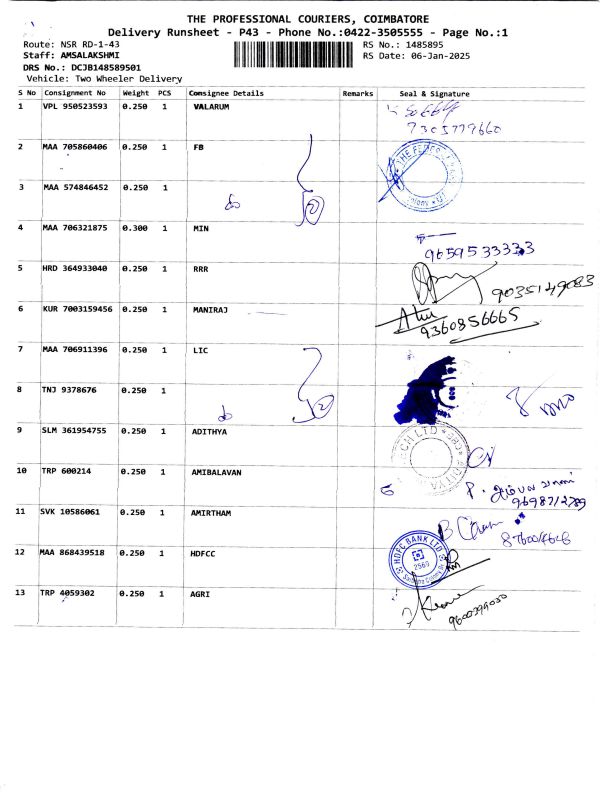 THE PROFESSIONAL COURIERS, COIMBATORE
Delivery Runsheet - P43 - Phone No.:0422-3505555 - Page No.:1
Route: NSR RD-1-43 RS No.: 1485895
Staff: AMSALAKSHMI RS Date: 06-Jan-2025
DRS No.: DCJB148589501
Vehicle: Two Wheeler Delivery
S No Consignment No Weight PCS Consignee Details Remarks Seal & Signature
1 VPL 950523593 0.250 1 VALARUM
7305779660
2 MAA 705860406 0.250 1 FB
3 MAA 574846452 0.250 1
do 2
4 MAA 706321875 0.300 1 MIN
9659533333
5 HRD 364933040 0.250 1 RRR
9035149083
6 KUR 7003159456 0.250 1 MANIRAJ
9360856665
7 MAA 706911396 0.250 1 LIC
8 TNJ 9378676 0.250 1
do 2
9 SLM 361954755 0.250 1 ADITHYA
10 TRP 600214 0.250 1 AMIBALAVAN
9698712789
11 SVK 10586061 0.250 1 AMIRTHAM
12 MAA 868439518 0.250 1 HDFCC
HDFC BANK LTD
2560
13 TRP 4059302 0.250 1 AGRI